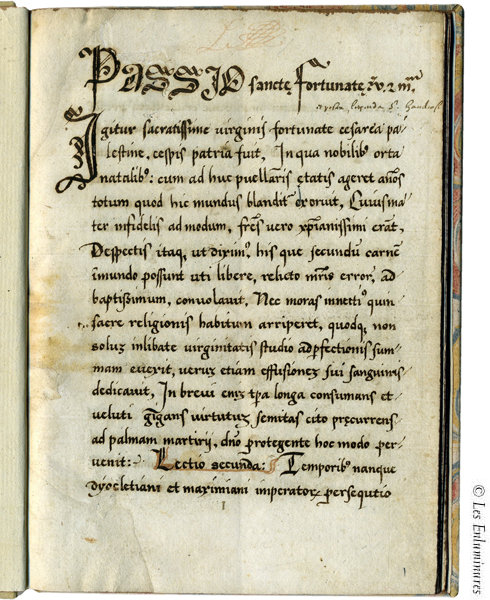 PASSIO sanctę fortunatę ṽ. 2 mrꝭ
Igitur sacratissime virginis fortunate cesarea pa-
lestine, cespis patria fuit, In qua nobilibꝰ orta
natalibꝰ: cum ad huc puellaris etatis ageret años
totum quod hic mundus blandit᷑ exoruit, Cuius ma-
ter infidelis ad modum, fr̃es vero xp̃ianissimi erãt,
Despectis itaq, ut diximꝰ, his que secundũ carnẽ
ĩ mundo possunt uti libere, relicto mr̃io error, ad
baptissimum, convolavit, Nec moras innetti quin
sacre religionis habitum arriperet, quodq, non
soluʒ inlibate virginitatis studio ad ꝑfectionis sum-
mam euerit, veruʒ etiam effusioneʒ sui sanguinis
dedicavit, In brevi eniʒ tp̃a longa consumans et
veluti gigans virtutuʒ semitas cito pręcurrens
ad palmam martirij, dñо protegente hoc modo per-
venit: Lectio secunda: Temporibꝰ nanque
dyocletiani et maximiani imperatoꝝ persequtio
1
© Les Enluminures